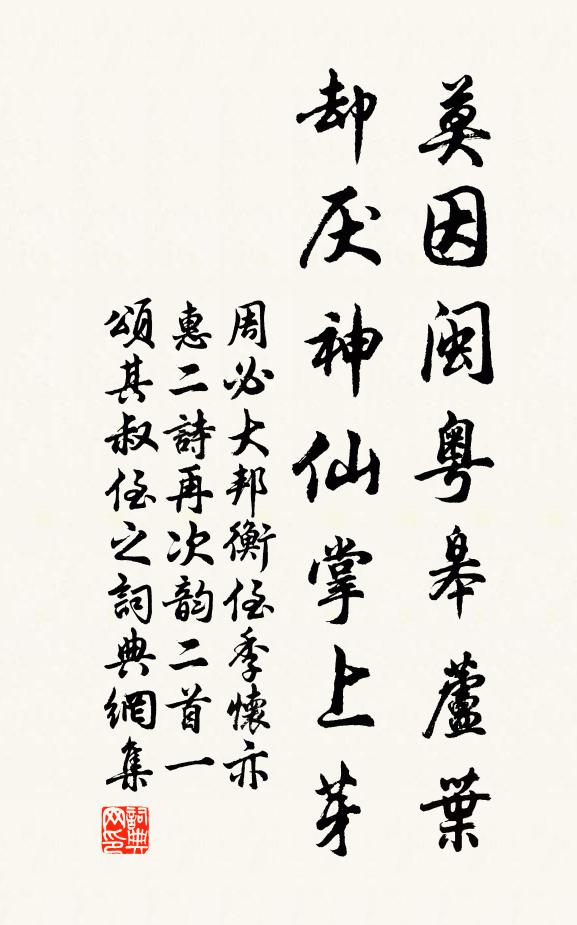 莫因闽粤皋蘆葉
却厌神仙掌上芽
周必大邦衡侄季懷亦
惠二詩再次韵二首一
頌其叔侄之詞典網集
詞典网印